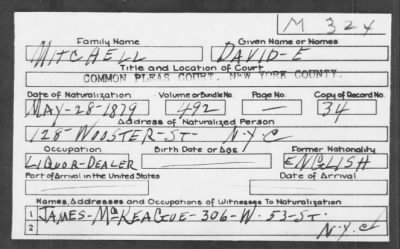 M 324
Family Name Given Name or Names
MITCHELL DAVID-E
Title and Location of Court
COMMON PLEAS COURT, NEW YORK COUNTY.
Date of Naturalization Volume or Bundle No. Page No. Copy of Record No.
MAY-28-1879 492 — 34
Address of Naturalized Person
128 WOOSTER-ST- N-Y-C
Occupation Birth Date or Age Former Nationality
LIQUOR-DEALER ENGLISH
Port of Arrival in the United States Date of Arrival
Names, Addresses and Occupations of Witnesses To Naturalization
1 JAMES-McKEAGUE-306-W-53-ST-
2 N-Y-C